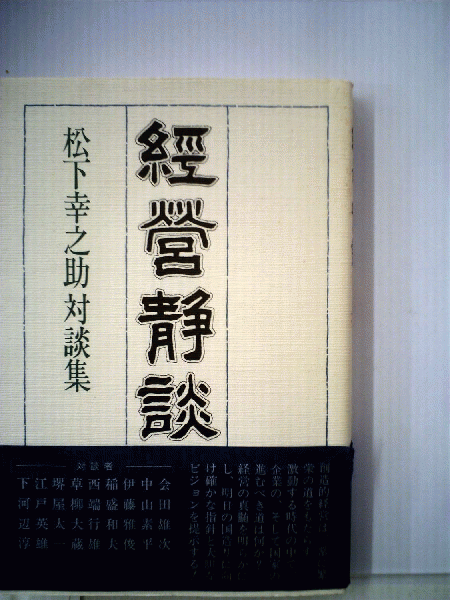 經營静談
松下幸之助対談集
創造的経営は
栄の道をもたらす
激動する時代の中で
企業の、そして国家の
進むべき道は何か?
経営の真髄を明らかに
し、明日の国造りに向
け確かな指針と大いなる
ビジョンを提示する!
対談者
会田雄次
中山素平
伊藤雅俊
稲盛和夫
西端行雄
草柳大蔵
堺屋太一
江戸英雄
下河辺淳